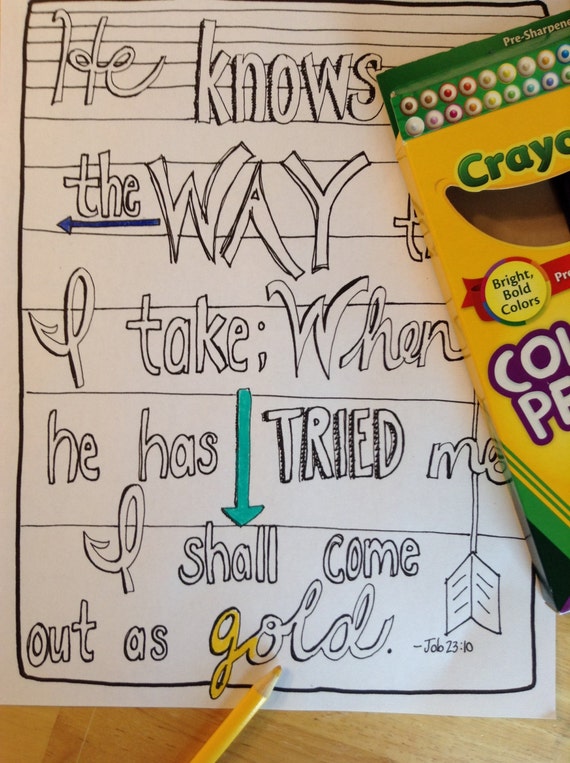 He knows
the WAY
I take; When
he has TRIED me
I shall come
out as gold.
-Job 23:10
Pre-Sharpened
Crayo
Bright,
Bold
Colors
COL
PE